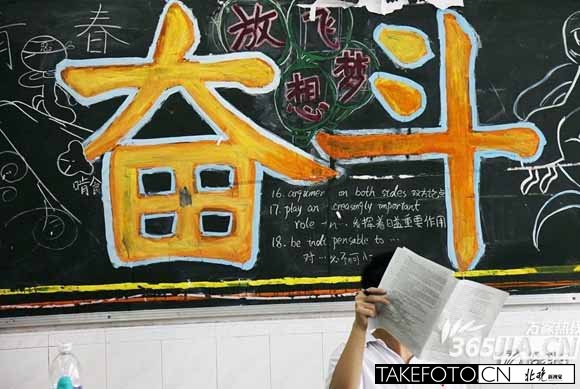 青春
放飞
梦想
奋斗
啃食
16. consumer on both sides 双方论点
17. play an creasingly important
role in … 扮演着日益重要作用
18. be indi pensable to …
对 … 必不可少
365JIA.CN
TAKEFOTOCN